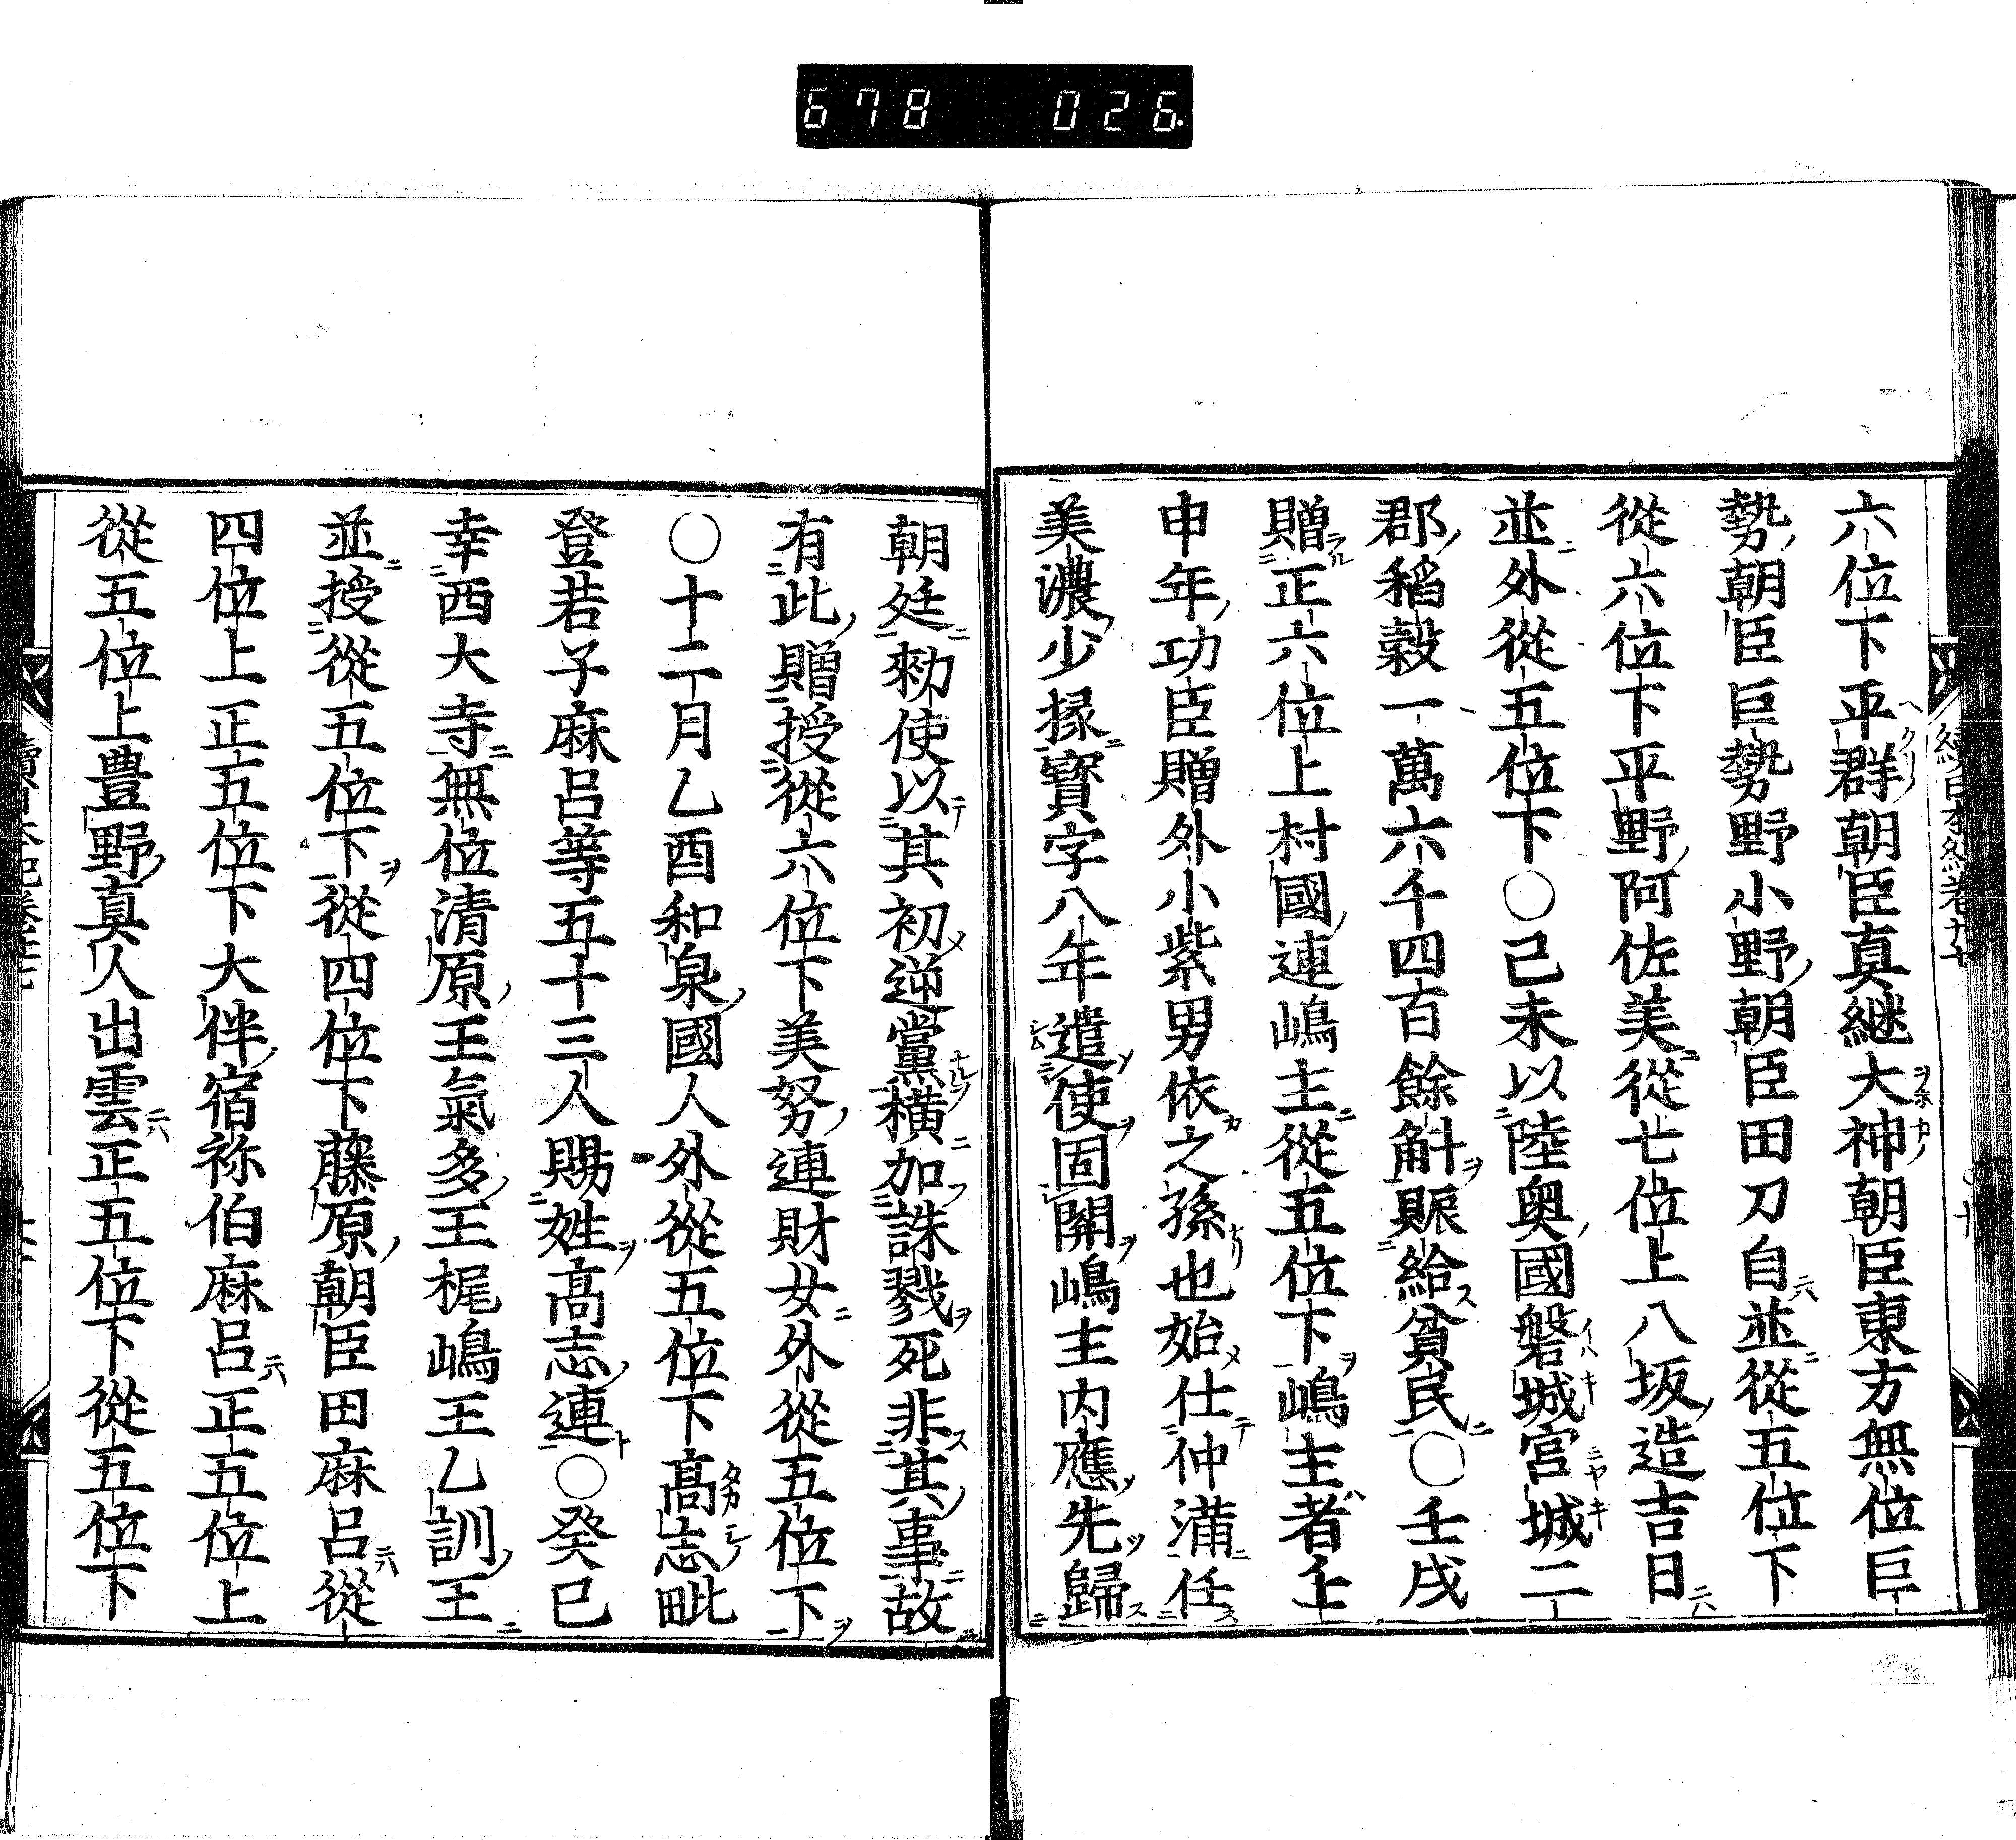 678 026
六位下平群朝臣真継大神朝臣東方無位巨
勢朝臣巨勢野小野朝臣田刀自並從五位下
從六位下平野阿佐美從七位上八坂造吉日
並外從五位下○己未以陸奥國磐城宮城二
郡稻穀一萬六千四百餘斛賑給貧民○壬戌
贈正六位上村國連嶋主從五位下嶋主者壬
申年功臣贈外小紫男依之孫也始仕仲満任
美濃少掾寳字八年遣使固關嶋主内應先歸
朝廷勑使以其初逆黨横加誅戮死非其事故
有此贈授從六位下美努連財女外從五位下
○十二月乙酉和泉國人外從五位下高志毗
登若子麻呂等五十三人賜姓高志連○癸巳
幸西大寺無位清原王氣多王梶嶋王乙訓王
並授從五位下從四位下藤原朝臣田麻呂從
四位上正五位下大伴宿祢伯麻呂正五位上
從五位上豊野真人出雲正五位下從五位下